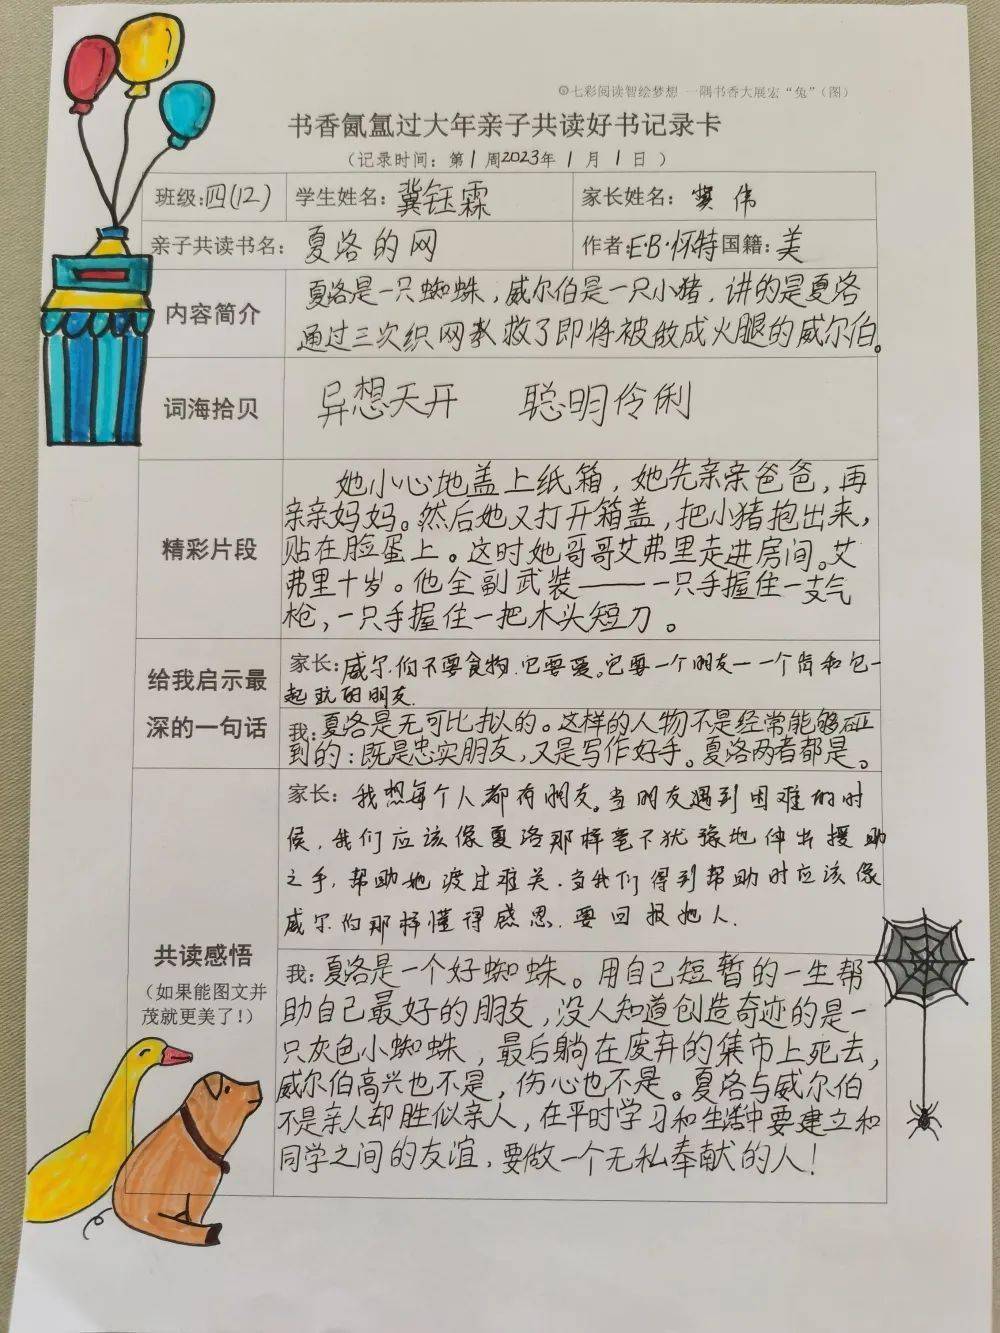 七彩阅读智绘梦想 一隅书香大展宏“兔”(图)
书香氤氲过大年亲子共读好书记录卡
(记录时间: 第1周2023年1月1日)
班级:四(12) 学生姓名:冀钰霖 家长姓名: 伟
亲子共读书名: 夏洛的网 作者:E·B·怀特 国籍:美
内容简介
夏洛是一只蜘蛛,威尔伯是一只小猪,讲的是夏洛
通过三次织网救了即将被做成火腿的威尔伯。
词海拾贝
异想天开 聪明伶俐
精彩片段
她小心地盖上纸箱,她先亲亲爸爸,再
亲亲妈妈。然后她又打开箱盖,把小猪抱出来,
贴在脸蛋上。这时她哥哥艾弗里走进房间。艾
弗里十岁。他全副武装——一只手握住一支气
枪,一只手握住一把木头短刀。
给我启示最
深的一句话
家长:威尔伯不要食物.它要爱。它要一个朋友——一个肯和它一
起玩的朋友.
我:夏洛是无可比拟的。这样的人物不是经常能够碰
到的:既是忠实朋友,又是写作好手。夏洛两者都是。
共读感悟
(如果能图文并
茂就更美了!)
家长: 我想每个人都有朋友。当朋友遇到困难的时
候,我们应该像夏洛那样毫不犹豫地伸出援助
之手,帮助她渡过难关.当我们得到帮助时应该像
威尔伯那样懂得感恩.要回报她人.
我:夏洛是一个好蜘蛛。用自己短暂的一生帮
助自己最好的朋友,没人知道创造奇迹的是一
只灰色小蜘蛛,最后躺在废弃的集市上死去,
威尔伯高兴也不是,伤心也不是。夏洛与威尔伯
不是亲人却胜似亲人,在平时学习和生活中要建立和
同学之间的友谊,要做一个无私奉献的人!